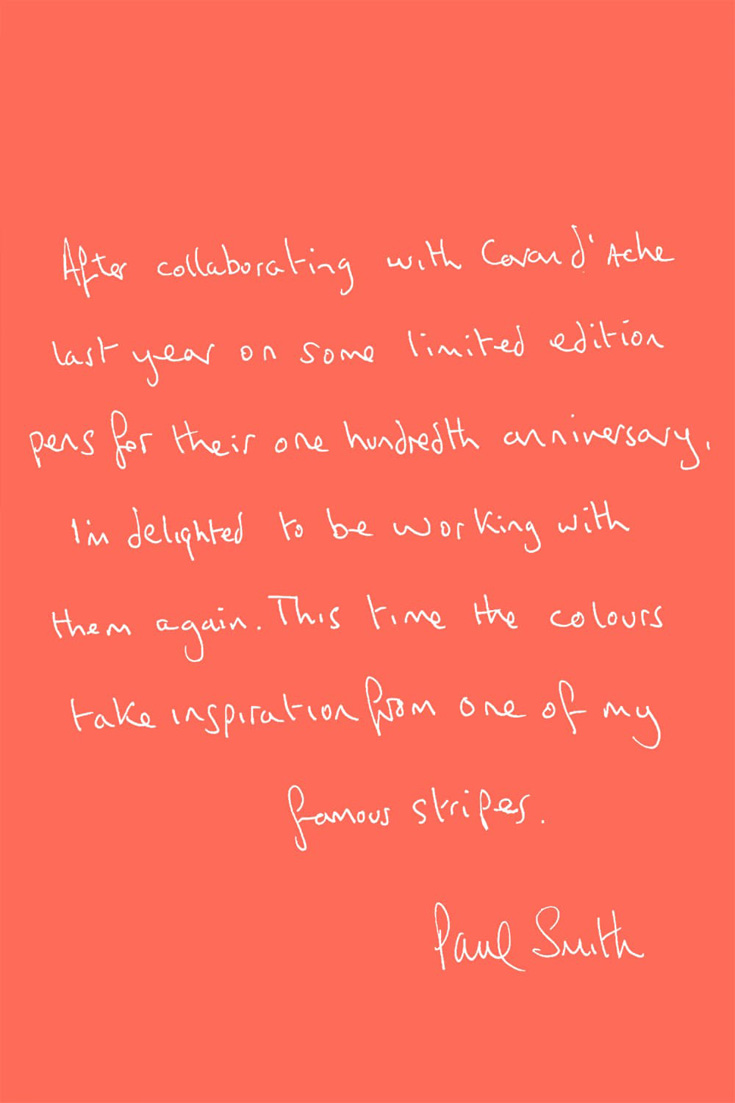 After collaborating with Caran d'Ache
last year on some limited edition
pens for their one hundredth anniversary,
I'm delighted to be working with
them again. This time the colours
take inspiration from one of my
famous stripes.
Paul Smith